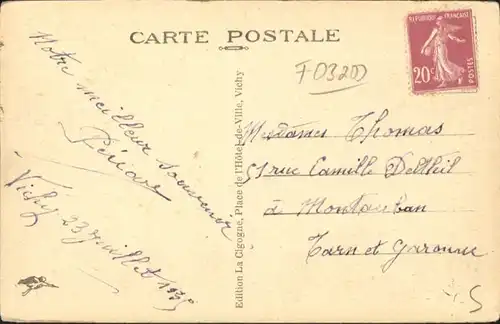 CARTE POSTALE
RÉPUBLIQUE FRANÇAISE
20c
POSTES
F0320
Notre meilleur souvenir
Vichy 23 Juillet 193
Edition La Cigogne, Place de l'Hôtel-de-Ville, Vichy
Mesdames Thomas
51 rue Camille Delthil
à Montauban
Tarn et Garonne
5